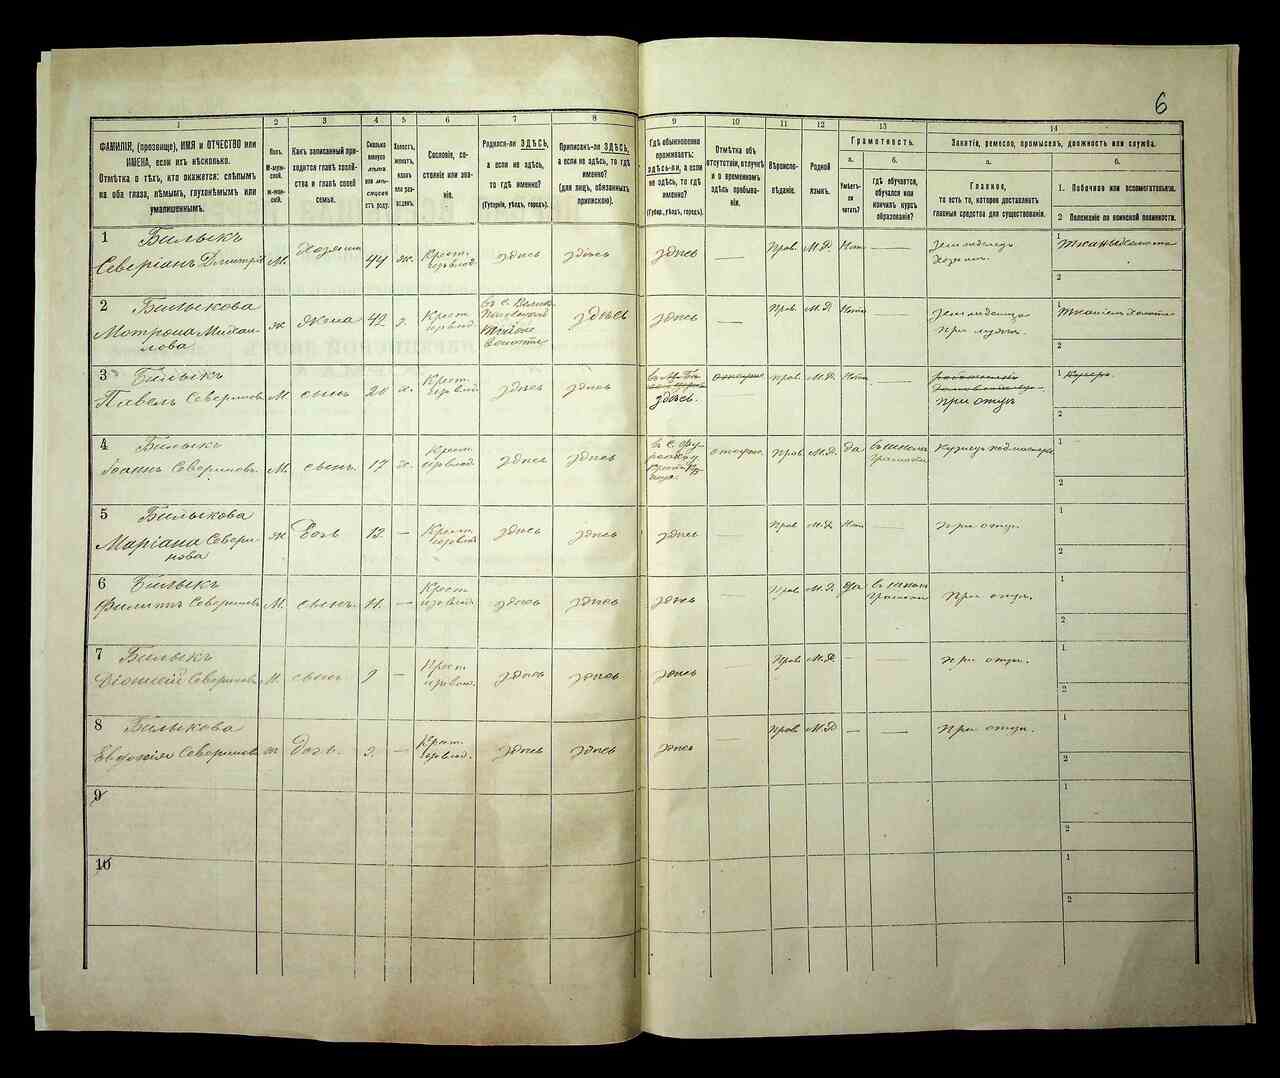 6
1 2 3 4 5 6 7 8 9 10 11 12 13 14
ФАМИЛІЯ, (прозвище), ИМЯ и ОТЧЕСТВО или
ИМЕНА, если ихъ нѣсколько.
Отмѣтка о тѣхъ, кто окажется: слѣпымъ
на оба глаза, нѣмымъ, глухонѣмымъ или
умалишеннымъ.
Полъ.
М-муж-
ской.
Ж-жен-
скій.
Какъ записанный при-
ходится главѣ хозяй-
ства и главѣ своей
семьи.
Сколько
минуло
лѣтъ
или мѣ-
сяцевъ
отъ роду.
Холостъ,
женатъ,
вдовъ
или раз-
веденъ.
Сословіе, со-
стояніе или зва-
ніе.
Родился-ли ЗДѢСЬ,
а если не здѣсь,
то гдѣ именно?
(Губернія, уѣздъ, городъ).
Приписанъ-ли ЗДѢСЬ,
а если не здѣсь, то гдѣ
именно?
(для лицъ, обязанныхъ
припискою).
Гдѣ обыкновенно
проживаетъ:
здѣсь-ли, а если
не здѣсь, то гдѣ
именно?
(Губер., уѣздъ, городъ).
Отмѣтка объ
отсутствіи, отлучкѣ
и о временномъ
здѣсь пребыва-
ніи.
Вѣроиспо-
вѣданіе.
Родной
языкъ.
Грамотность.
а.
Умѣетъ-
ли
читать?
б.
гдѣ обучается,
обучался или
кончилъ курсъ
образованія?
Занятія, ремесло, промыселъ, должность или служба.
а.
Главное,
то есть то, которое доставляетъ
главныя средства для существованія.
б.
1. Побочное или вспомогательное.
2 Положеніе по воинской повинности.
1 Билыкъ
Северіанъ Димитріев М. Хозяинъ 44 ж. Крест. здѣсь здѣсь здѣсь — Прав М.Р. Нѣт — Земледѣлецъ
Хозяинъ.
1
2
2 Билыкова
Мотрона Михаи-
лова ж Жена 42 з. Крест. въ с. здѣсь здѣсь — Прав М.Р. Нѣт
при мужѣ.
1
2
3 Билыкъ
Павелъ Северинов М. сынъ 20 х. Крест. здѣсь здѣсь здѣсь. — Прав М.Р. Нѣт — при отцѣ
1 Кучеръ.
2
4 Билыкъ
Іоаннъ Северинов. М. сынъ. 17 х. Крест. здѣсь здѣсь въ с. Прав М.Р. да въ школѣ
грамоты Кузнецъ подмастерье
1
2
5 Билыкова
Маріана Севери-
нова ж Дочь 13. — Крест. здѣсь здѣсь здѣсь — Прав М.Р. Нѣт — При отцѣ.
1
2
6 Билыкъ
Филиппъ Северинов М. сынъ. 11. — Крест здѣсь здѣсь здѣсь — Прав М.Р. Да въ школ
грамоты При отцѣ.
1
2
7 Билыкъ
Діонисій Северинов М. сынъ 9 — Крест здѣсь здѣсь здѣсь — Прав М.Р. — — при отцѣ.
1
2
8 Билыкова
Евдокія Северинов ж Дочь. 3. — Крест. здѣсь здѣсь здѣсь — Прав М.Р — — При отцѣ.
1
2
9
1
2
10
1
2